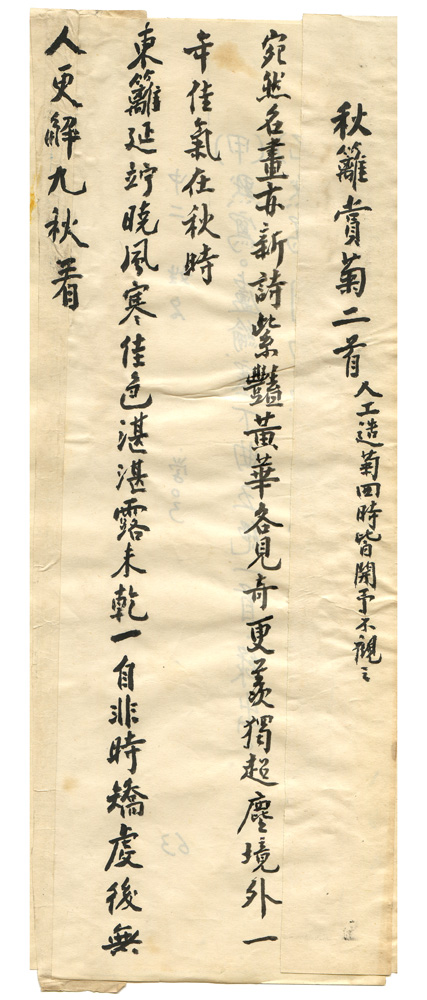 秋籬賞菊二首人工造菊四時皆開予不觀之
宛然名畫亦新詩紫豔黃華各見奇更羨獨超塵境外一
年佳氣在秋時
東籬延竚曉風寒佳色湛湛露未乾一自非時矯虔後無
人更解九秋看
63